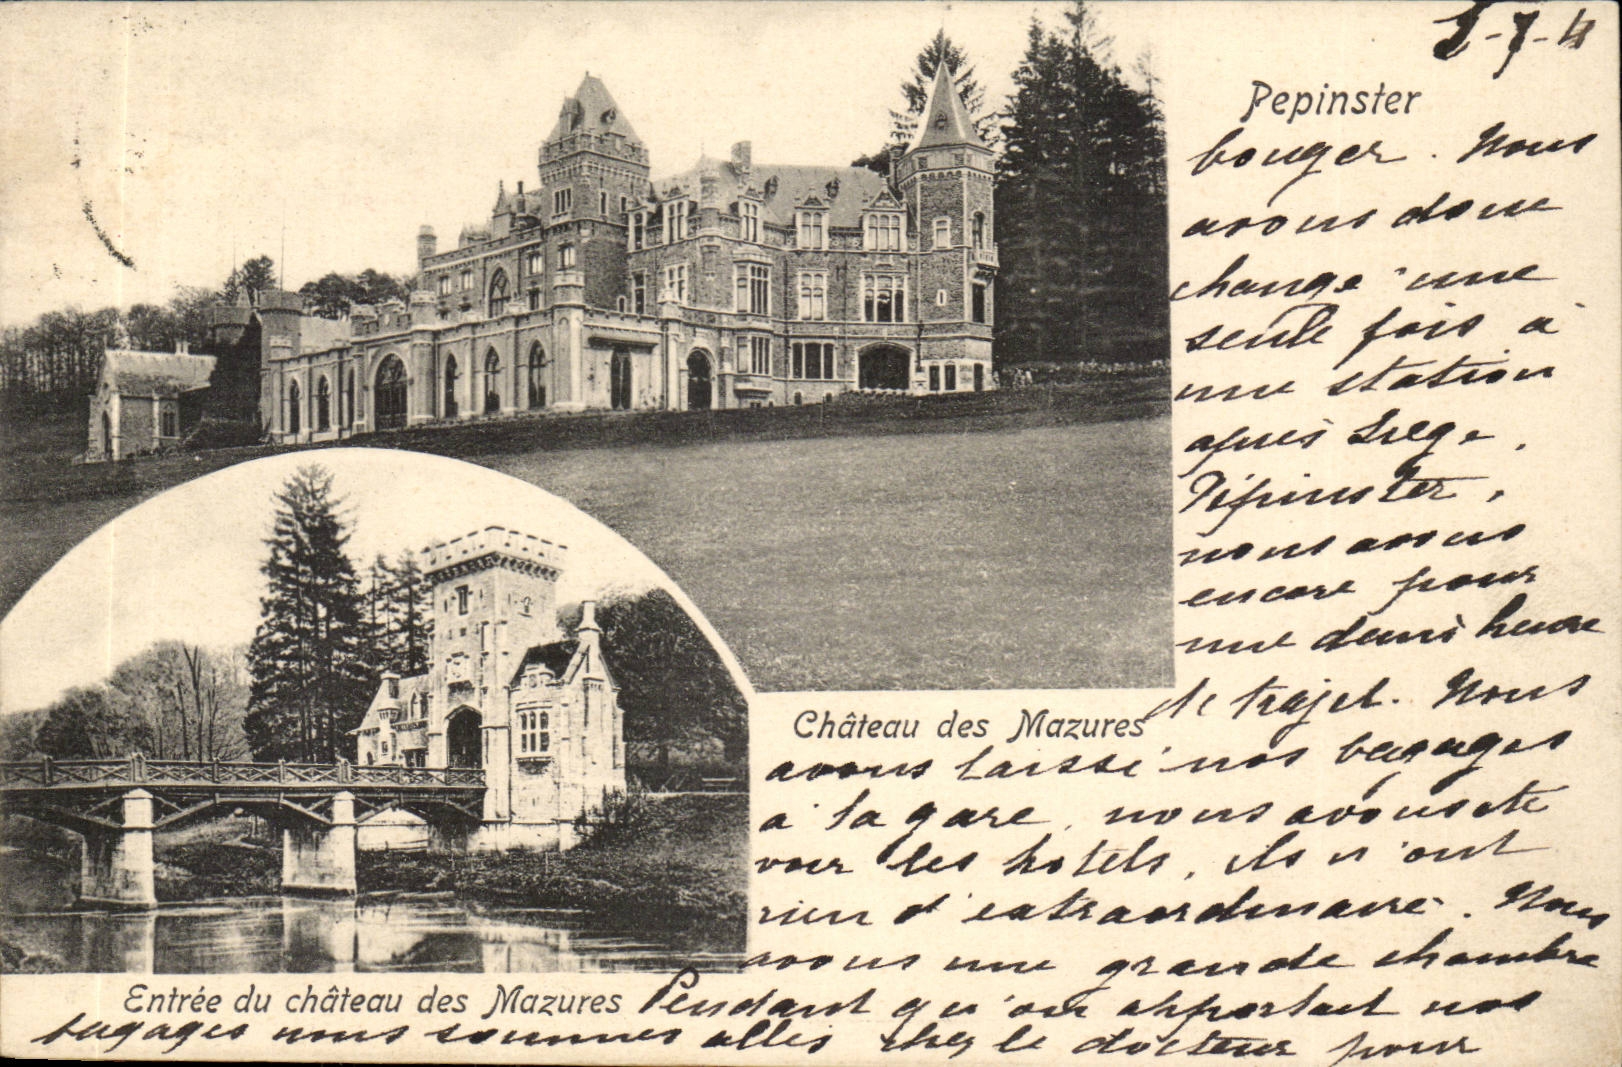 5-7-4
Pepinster
bouger. Nous
avons donc
changé une
seule fois à
une station
après Liége,
Pépinster,
nous avons
encore pour
une demi heure
de trajet. Nous
Château des Mazures
avons laissé nos bagages
à la gare, nous avons été
voir les hotels, ils n'ont
rien d'extraordinaire. Nous
avons une grande chambre
Entrée du château des Mazures
Pendant qu'on apportait nos
bagages nous sommes allés chez le docteur pour